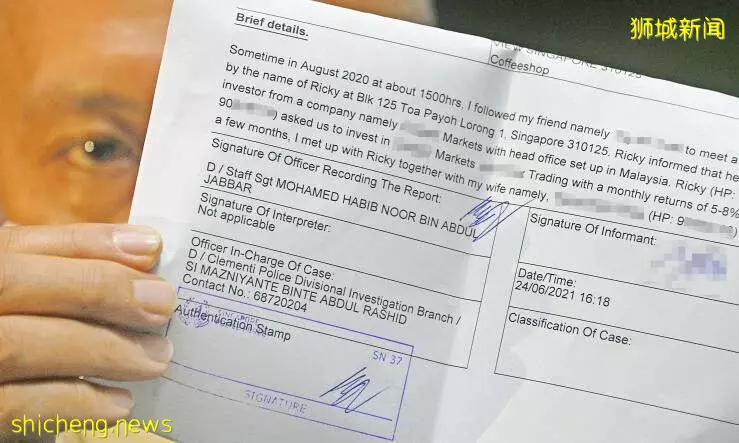 狮城新闻
Brief details.
VIEW SINGAPORE 310125
Coffeeshop
Sometime in August 2020 at about 1500hrs, I followed my friend namely to meet a
by the name of Ricky at Blk 125 Toa Payoh Lorong 1, Singapore 310125. Ricky informed that he
investor from a company namely Markets with head office set up in Malaysia. Ricky (HP:
90 ) asked us to invest in Markets Trading with a monthly returns of 5-8%
a few months, I met up with Ricky together with my wife namely, (HP: 9 )
Signature Of Officer Recording The Report:
D / Staff Sgt MOHAMED HABIB NOOR BIN ABDUL
JABBAR
Signature Of Interpreter:
Not applicable
Officer In-Charge Of Case:
D / Clementi Police Divisional Investigation Branch /
SI MAZNIYANTE BINTE ABDUL RASHID
Contact No.: 68720204
Authentication Stamp
SINGAPORE
SN 37
SIGNATURE
Signature Of Informant:
Date/Time:
24/06/2021 16:18
Classification Of Case:
shicheng.news